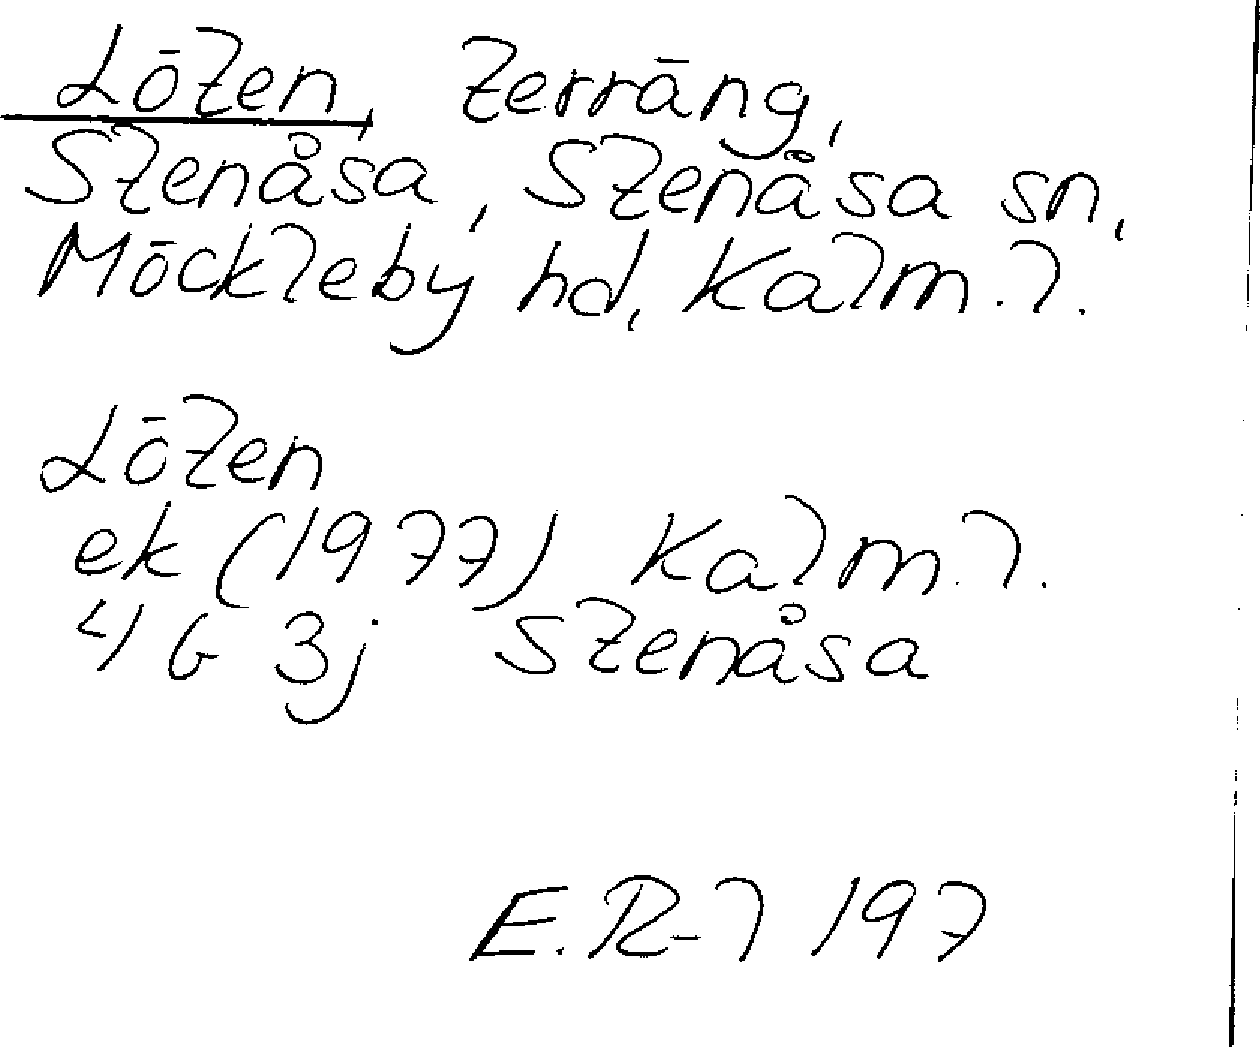 Löten, terräng,
Stenåsa, Stenåsa sn,
Möckleby hd, Kalm. l.
Löten
ek (1977) Kalm. l.
4G 3j Stenåsa
E. R-l 197